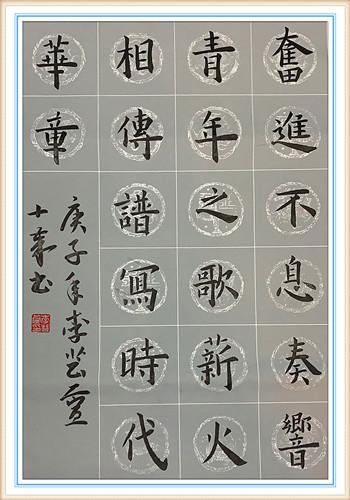 奮進不息奏響
青年之歌薪火
相傳譜寫時代
華章
庚子年李芸壹
十歲書